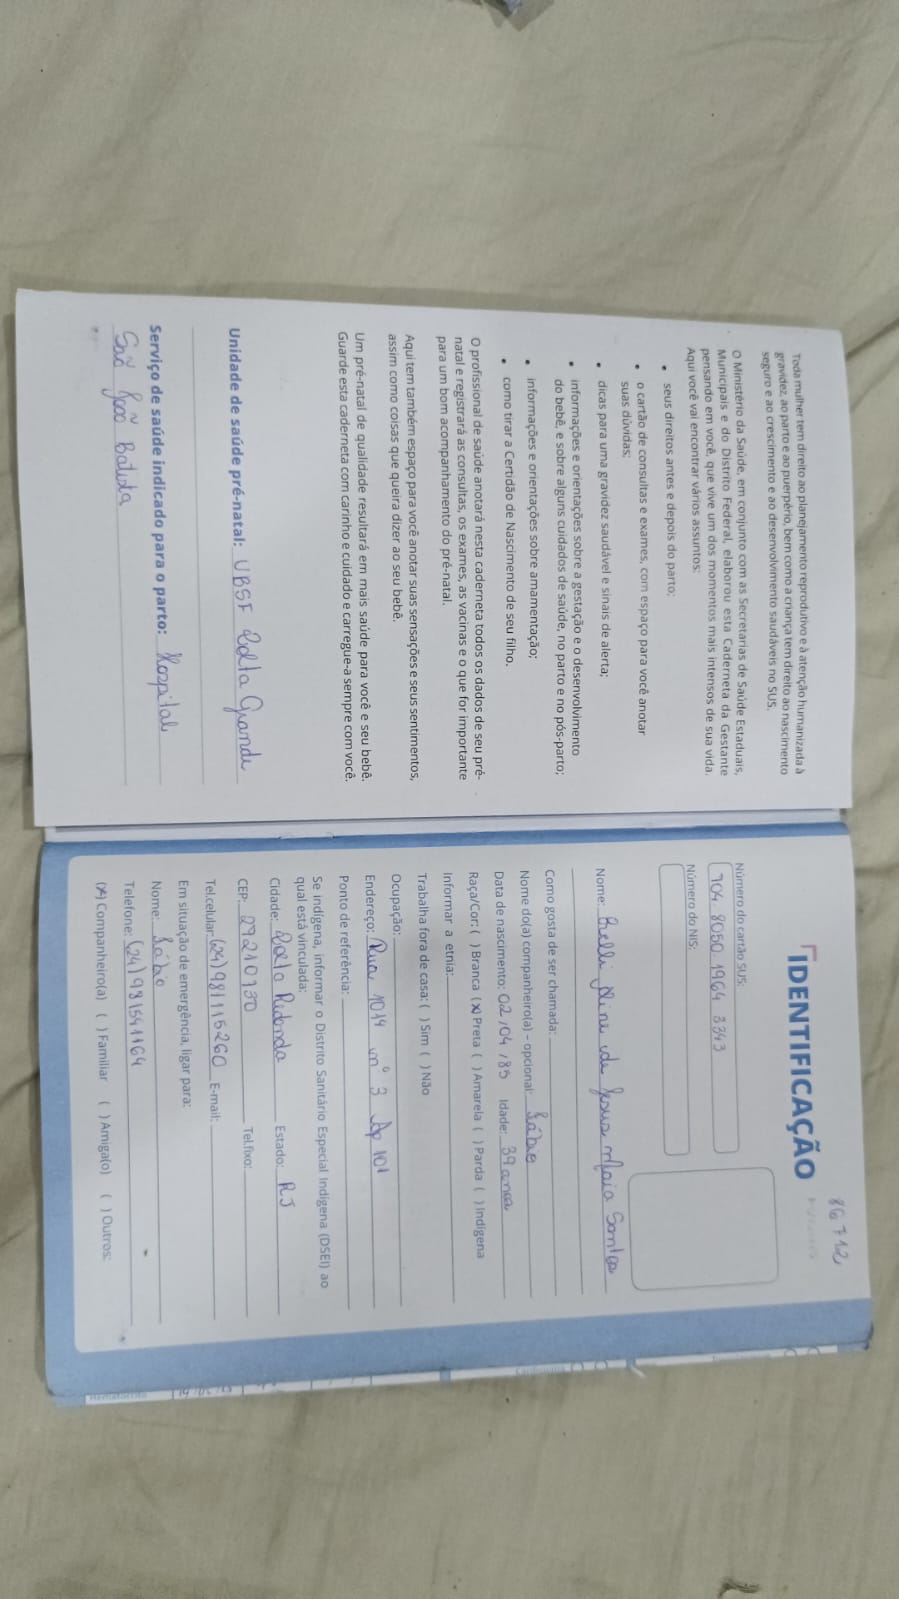 Toda mulher tem direito ao planejamento reprodutivo e à atenção humanizada à
gravidez, ao parto e ao puerpério, bem como a criança tem direito ao nascimento
seguro e ao crescimento e ao desenvolvimento saudáveis no SUS.
O Ministério da Saúde, em conjunto com as Secretarias de Saúde Estaduais,
Municipais e do Distrito Federal, elaborou esta Caderneta da Gestante
pensando em você, que vive um dos momentos mais intensos de sua vida.
Aqui você vai encontrar vários assuntos:
• seus direitos antes e depois do parto;
• o cartão de consultas e exames, com espaço para você anotar
suas dúvidas;
• dicas para uma gravidez saudável e sinais de alerta;
• informações e orientações sobre a gestação e o desenvolvimento
do bebê, e sobre alguns cuidados de saúde, no parto e no pós-parto;
• informações e orientações sobre amamentação;
• como tirar a Certidão de Nascimento de seu filho.
O profissional de saúde anotará nesta caderneta todos os dados de seu pré-
natal e registrará as consultas, os exames, as vacinas e o que for importante
para um bom acompanhamento do pré-natal.
Aqui tem também espaço para você anotar suas sensações e seus sentimentos,
assim como coisas que queira dizer ao seu bebê.
Um pré-natal de qualidade resultará em mais saúde para você e seu bebê.
Guarde esta caderneta com carinho e cuidado e carregue-a sempre com você.
Unidade de saúde pré-natal: UBSF Volta Grande
Serviço de saúde indicado para o parto: Hospital
São João Batista
86712
IDENTIFICAÇÃO
Número do cartão SUS:
704 8050 1964 3343
Número do NIS:
Nome: Kelli Aline de Jesus Maia Santos
Como gosta de ser chamada:
Nome do(a) companheiro(a) - opcional: Fábio
Data de nascimento: 02/04/85 Idade: 39 anos
Raça/Cor: ( ) Branca (X) Preta ( ) Amarela ( ) Parda ( ) Indígena
Informar a etnia:
Trabalha fora de casa: ( ) Sim ( ) Não
Ocupação:
Endereço: Rua 1014 nº 3 Ap 101
Ponto de referência:
Se indígena, informar o Distrito Sanitário Especial Indígena (DSEI) ao
qual está vinculada:
Cidade: Volta Redonda Estado: RJ
CEP: 27210730 Tel.fixo:
Tel.celular: (24) 981115260 E-mail:
Em situação de emergência, ligar para:
Nome: Fábio
Telefone: (24) 981541164
(X) Companheiro(a) ( ) Familiar ( ) Amiga(o) ( ) Outros: